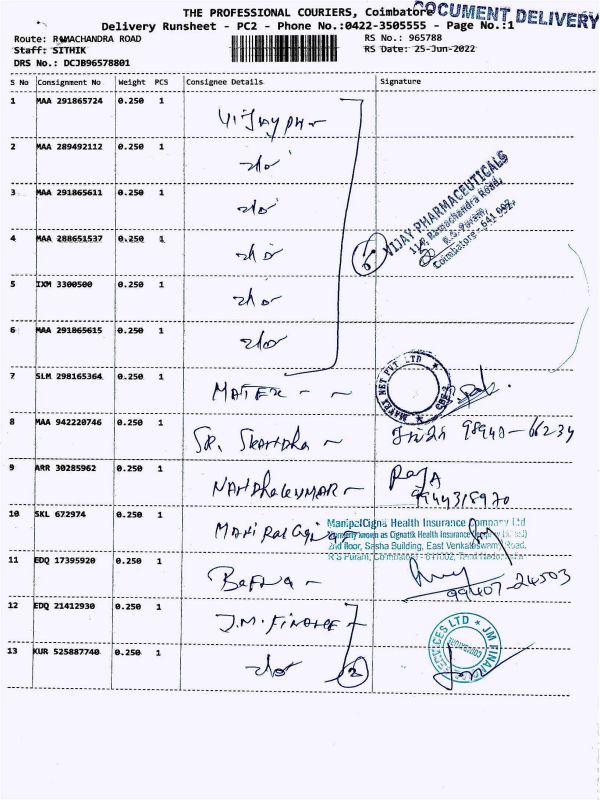 THE PROFESSIONAL COURIERS, Coimbatore
DOCUMENT DELIVERY
Delivery Runsheet - PC2 - Phone No.:0422-3505555 - Page No.:1
Route: RAMACHANDRA ROAD
RS No.: 965788
Staff: SITHIK
RS Date: 25-Jun-2022
DRS No.: DCJB96578801
S No Consignment No Weight PCS Consignee Details Signature
1 MAA 291865724 0.250 1
2 MAA 289492112 0.250 1
3 MAA 291865611 0.250 1
VIJAY PHARMACEUTICALS
114, Ramachandra Road,
R.S. Puram,
Coimbatore - 641 002.
4 MAA 288651537 0.250 1
5
5 IXM 3300500 0.250 1
6 MAA 291865615 0.250 1
7 SLM 298165364 0.250 1
8 MAA 942220746 0.250 1 98940-66234
9 ARR 30285962 0.250 1 NANDhaKUMAR Raja
9944318970
10 SKL 672974 0.250 1
ManipalCigna Health Insurance Company Ltd
(Formerly known as Cignattk Health Insurance
2nd floor, Sasha Building, East Venkataswamy Road,
R S Puram, Coimbatore - 641002, Tamil Nadu
11 EDQ 17395920 0.250 1 Bafna 99407-24503
12 EDQ 21412930 0.250 1 J.M. FINANCE
13 KUR 525887740 0.250 1 2